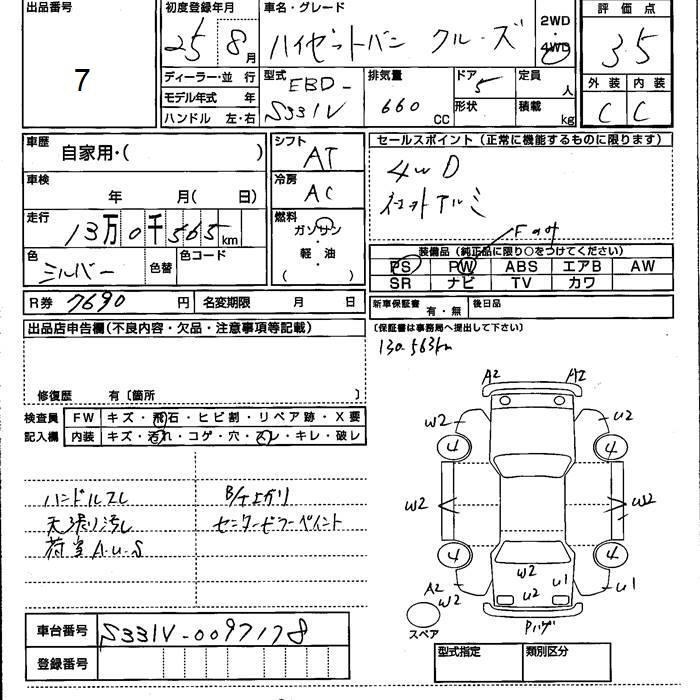 出品番号
7
初度登録年月
25 8月
車名・グレード
ハイゼットバン クルーズ
2WD
4WD
評価点
3.5
外装 内装
C C
ディーラー・並行
モデル年式 年
ハンドル 左・右
型式
EBD-
S331V
排気量
660 CC
ドア 5
形状
定員 人
積載 kg
車歴
自家用・( )
車検
年 月( 日)
走行
13万0千565km
色
シルバー
色替
色コード
シフト
AT
冷房
AC
燃料
ガソリン
・
軽・油
( )
セールスポイント(正常に機能するものに限ります)
4WD
社外アルミ
Fのみ
装備品(純正品に限り○をつけてください)
PS PW ABS エアB AW
SR ナビ TV カワ
R券 7690円
名変期限 月 日
新車保証書 有・無
後日品
(保証書は事務局へ提出して下さい)
出品店申告欄(不良内容・欠品・注意事項等記載)
修復歴 有〔箇所 〕
130.563km
検査員
記入欄
FW キズ・飛石・ヒビ割・リペア跡・X要
内装 キズ・汚れ・コゲ・穴・スレ・キレ・破レ
ハンドルスレ
天張り汚し
荷室A.U.S
B/下よがり
センターピラーペイント
A2 A2
W2 U2
4 4
W2 W2
4 4
A2 W2
W2
U2 U1
U1
Pハゲ
スペア
車台番号 S331V-0097178
登録番号
型式指定 類別区分